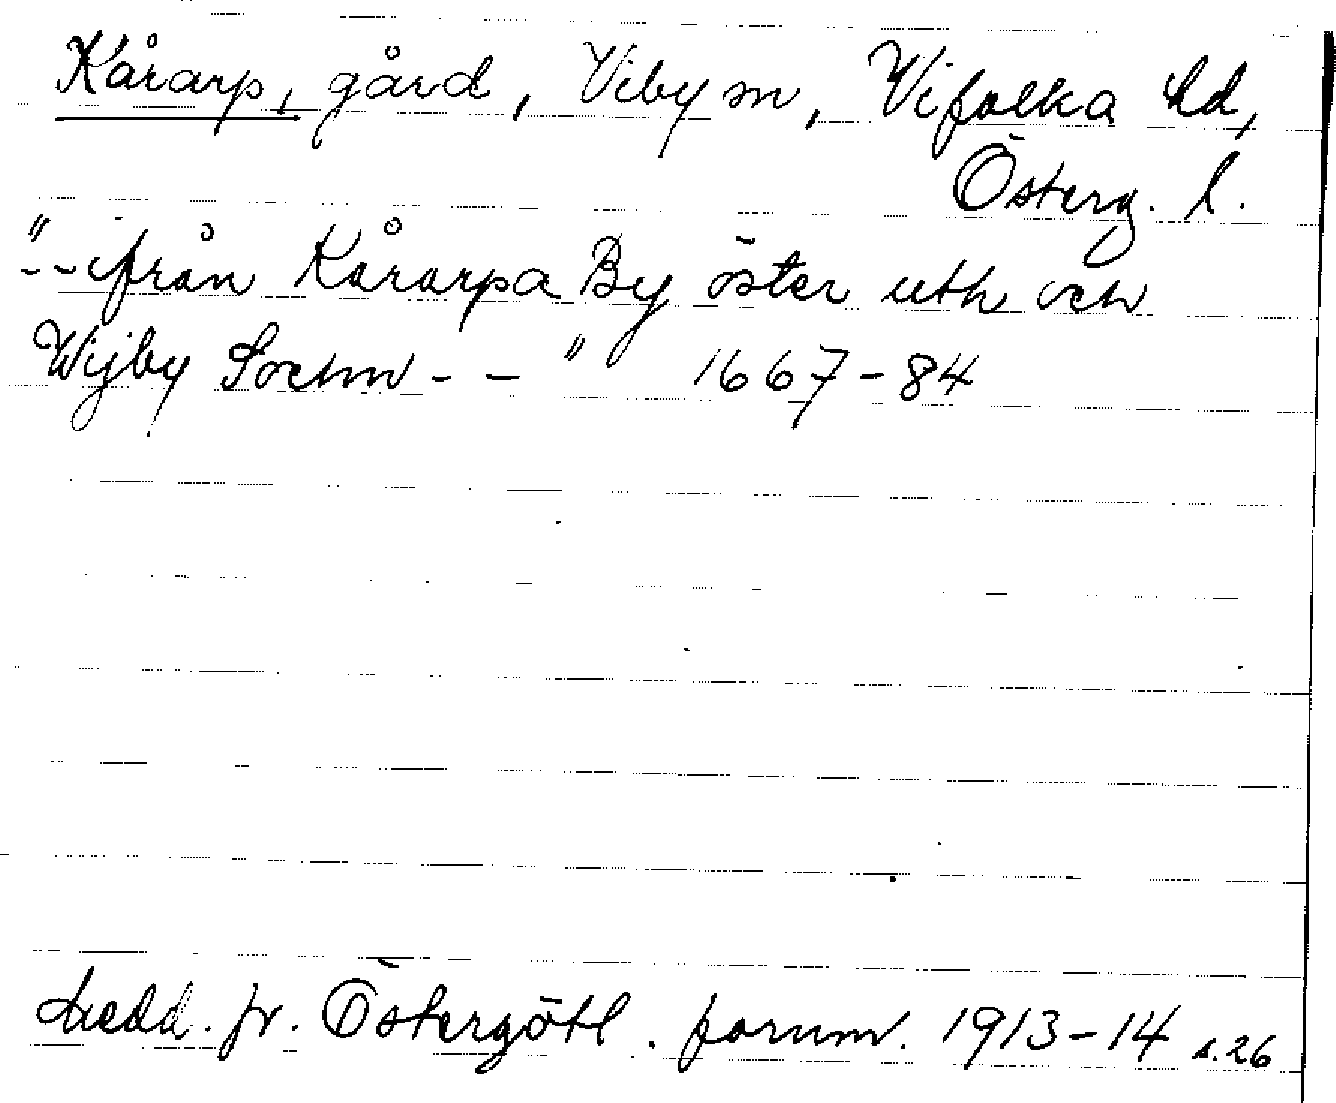 Kårarp, gård, Viby sn, Vifolka hd,
Österg. l.
"--ifrån Kårarpa By öster uth och
Wijby Sochn -- " 1667-84
Medd. fr. Östergötl. fornm. 1913-14 s.26